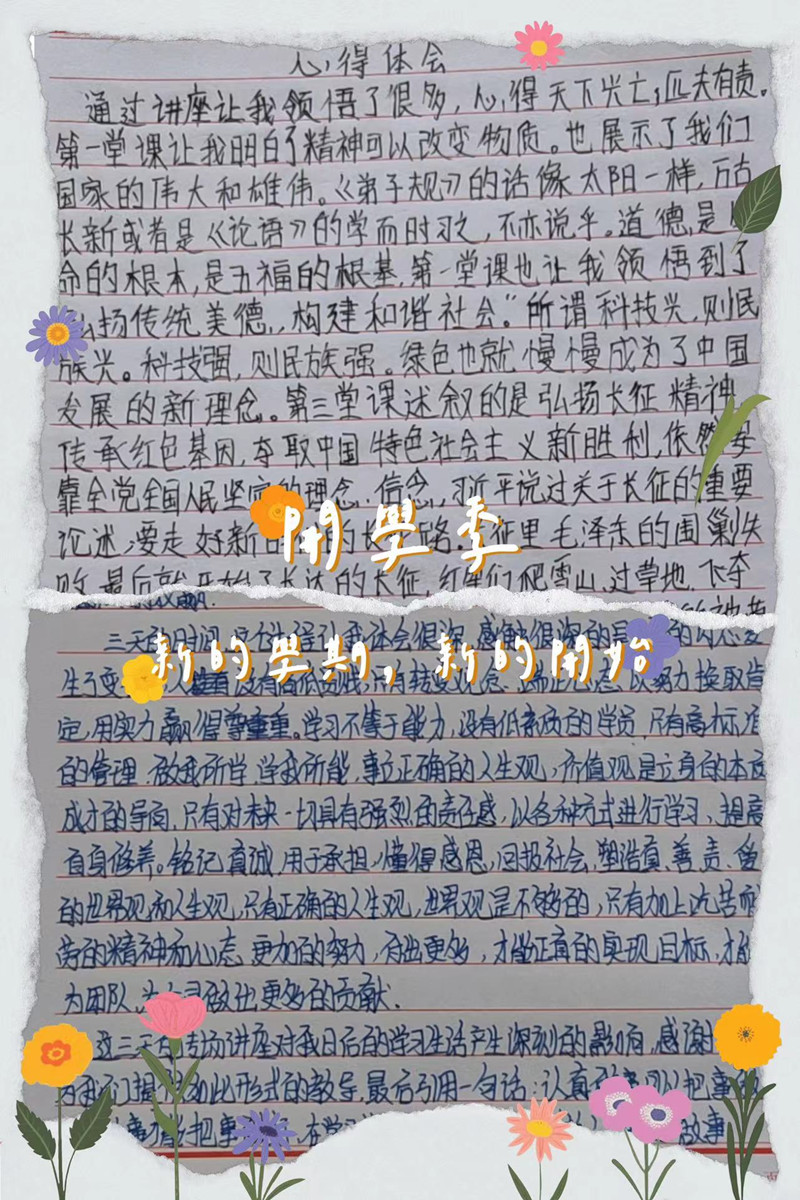 心得体会
通过讲座让我领悟了很多，心得天下兴亡，匹夫有责。
第一堂课让我明白了精神可以改变物质。也展示了我们
国家的伟大和雄伟。《弟子规》的话像太阳一样，万古
长新或者是《论语》的学而时习之，不亦说乎。道德是
命的根本，是五福的根基，第一堂课也让我领悟到了
扬传统美德，构建和谐社会”所谓科技兴，则民
族兴。科技强，则民族强。绿色也就慢慢成为了中国
发展的新理念。第三堂课述叙的是弘扬长征精神
传承红色基因，夺取中国特色社会主义新胜利，依然要
靠全党全国人民坚定的理念、信念，习近平说过关于长征的重要
论述，要走好新的长 路。长征里毛泽东的围剿失
败，最后就开始了长达的长征，红军们爬雪山，过草地，飞夺
開學季
三天的时间 我体会很深，感触很深的是
新的學期，新的開始
生了变 没有高低贵贱，只有转变观念、端正心态，以努力换取肯
定，用实力赢得尊重重。学习不等于能力，没有低素质的学员，只有高标准
的管理，教我所学，学我所能，事立正确的人生观，价值观是立身的本质
成才的导向，只有对未来一切具有强烈的责任感，以各种方式进行学习、提高
自身修养。铭记真诚，用于承担，懂得感恩，回报社会，塑造真、善、责、爱
的世界观和人生观，只有正确的人生观，世界观是不够的，只有加上吃苦耐
劳的精神和心态，更加的努力，付出更多，才能正真的实现目标，才能
为团队、为 做出更多的贡献。
这三天的专场讲座对我日后的学习生活产生深刻的影响，感谢
为我们提供如此形式的教导，最后引用一句话：认真 可以把事
事 把事 ，在学习
故事